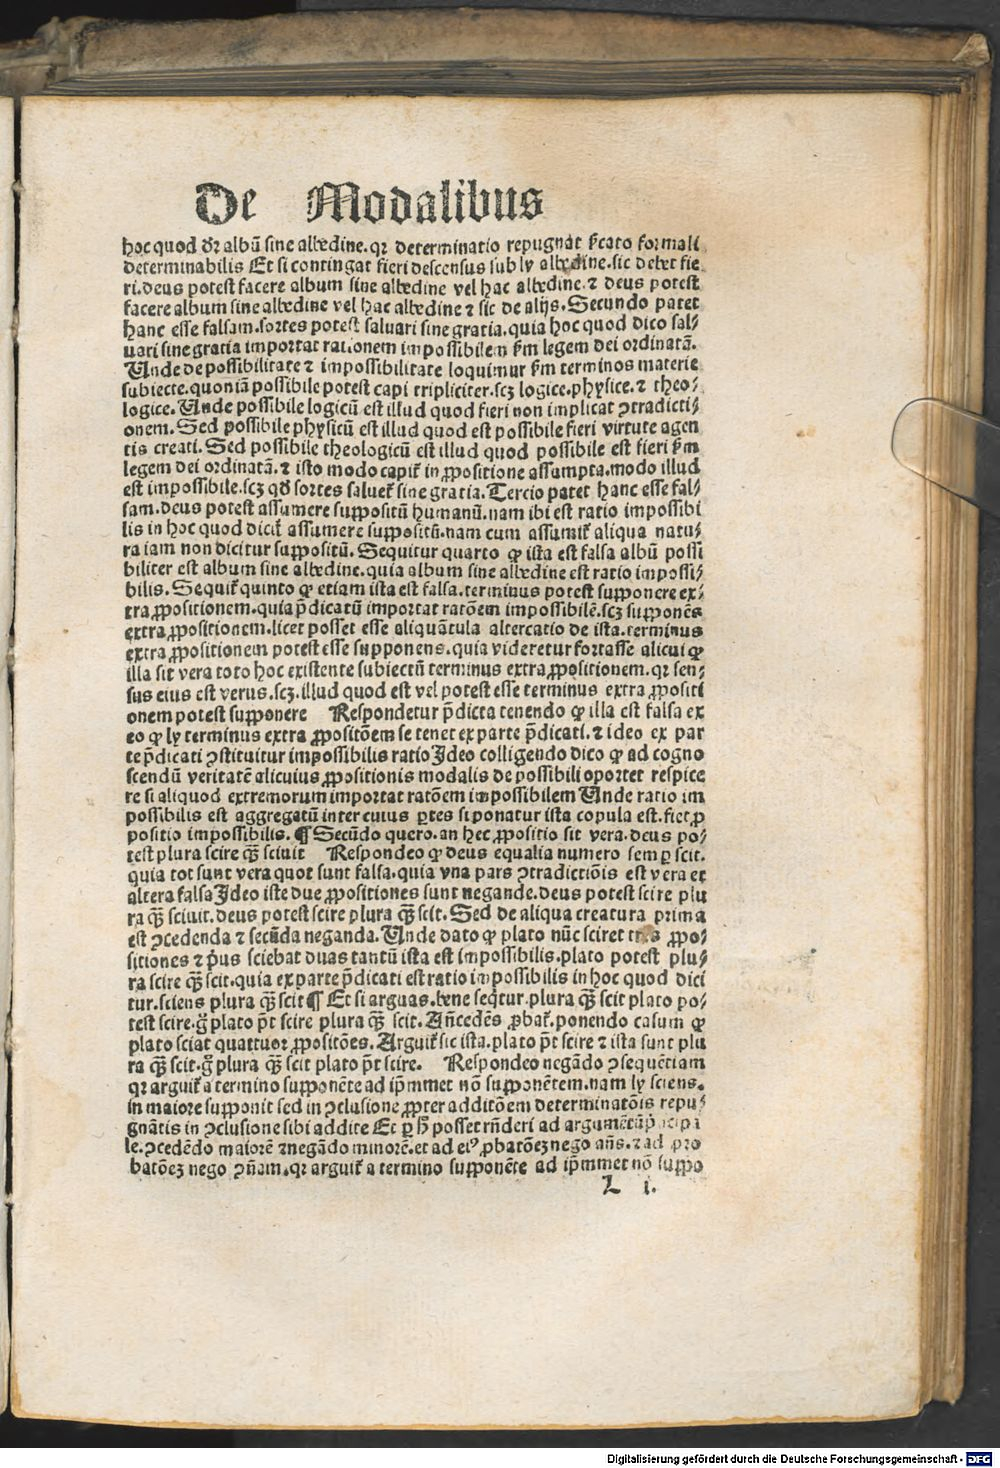 De Modalibus
hoc quod dr̄ albū sine albedine. qꝛ determinatio repugnat s̄cato formali
determinabilis Et si contingat fieri descensus sub ly albedine. sic debet fie
ri. deus potest facere album sine albedine vel hac albedine. ⁊ deus potest
facere album sine albedine vel hac albedine ⁊ sic de alijs. Secundo patet
hanc esse falsam. sortes potest saluari sine gratia. quia hoc quod dico sal⸗
uari sine gratia importat rationem impossibilem s̄m legem dei ordinatā.
Unde de possibilitate ⁊ impossibilitate loquimur s̄m terminos materie
subiecte. quoniā possibile potest capi tripliciter. scꝫ logice. physice. ⁊ theo⸗
logice. Unde possibile logicū est illud quod fieri non implicat ꝯtradicti⸗
onem. Sed possibile physicū est illud quod est possibile fieri virtute agen
tis creati. Sed possibile theologicū est illud quod possibile est fieri s̄m
legem dei ordinatā. ⁊ isto modo capit᷑ in ꝓpositione assumpta. modo illud
est impossibile. scꝫ qd̄ sortes saluet᷑ sine gratia. Tercio patet hanc esse fal⸗
sam. deus potest assumere suppositū humanū. nam ibi est ratio impossibi
lis in hoc quod dicit᷑ assumere suppositū. nam cum assumit᷑ aliqua natu⸗
ra iam non dicitur suppositū. Sequitur quarto ꝙ ista est falsa albū possi
biliter est album sine albedine. quia album sine albedine est ratio impossi⸗
bilis. Sequit᷑ quinto ꝙ etiam ista est falsa. terminus potest supponere ex⸗
tra ꝓpositionem. quia p̄dicatū importat ratōem impossibilē. scꝫ supponēs
extra ꝓpositionem. licet posset esse aliquātula altercatio de ista. terminus
extra ꝓpositionem potest esse supponens. quia videretur fortasse alicui ꝙ
illa sit vera toto hoc existente subiectū terminus extra ꝓpositionem. qꝛ sen⸗
sus eius est verus. scꝫ. illud quod est vel potest esse terminus extra ꝓpositi
onem potest supponere Respondetur p̄dicta tenendo ꝙ illa est falsa ex
eo ꝙ ly terminus extra ꝓpositōem se tenet ex parte p̄dicati. ⁊ ideo ex par
te p̄dicati ꝯstituitur impossibilis ratio Ideo colligendo dico ꝙ ad cogno
scendū veritatē alicuius ꝓpositionis modalis de possibili oportet respice
re si aliquod extremorum importat ratōem impossibilem Unde ratio im
possibilis est aggregatū inter cuius ꝑtes si ponatur ista copula est. fiet ꝓ
positio impossibilis. ¶ Secūdo quero. an hec ꝓpositio sit vera. deus po⸗
test plura scire qꝫ̄ sciuit Respondeo ꝙ deus equalia numero semꝑ scit.
quia tot sunt vera quot sunt falsa. quia vna pars ꝯtradictiōis est vera et
altera falsa Ideo iste due ꝓpositiones sunt negande. deus potest scire plu
ra qꝫ̄ sciuit. deus potest scire plura qꝫ̄ scit. Sed de aliqua creatura prima
est ꝯcedenda ⁊ secūda neganda. Unde dato ꝙ plato nūc sciret tres ꝓpo⸗
sitiones ⁊ p̄us sciebat duas tantū ista est impossibilis. plato potest plu⸗
ra scire qꝫ̄ scit. quia ex parte p̄dicati est ratio impossibilis in hoc quod dici
tur. sciens plura qꝫ̄ scit ¶ Et si arguas. bene seq̄tur. plura qꝫ̄ scit plato po⸗
test scire. g̊ plato pōt scire plura qꝫ̄ scit. Añcedēs ꝓbat᷑. ponendo casum ꝙ
plato sciat quattuor ꝓpositōes. Arguit᷑ sic ista. plato pōt scire ⁊ ista sunt plu
ra qꝫ̄ scit. g̊ plura qꝫ̄ scit plato pōt scire. Respondeo negādo ꝯsequētiam
qꝛ arguit᷑ a termino supponēte ad ip̄mmet nō supponētem. nam ly sciens.
in maiore supponit sed in ꝯclusione ꝓpter additōem determinatōis repu⸗
gnātis in ꝯclusione sibi addite Et ꝑ hꝭ posset rn̄deri ad argumētū p̄ncipa
le. ꝯcedēdo maiorē ⁊ negādo minorē. et ad eiꝰ ꝓbatōeꝫ nego añs. ⁊ ad pro
batōeꝫ nego ꝯñam. qꝛ arguit᷑ a termino supponēte ad ip̄mmet nō suppo
L i.
Digitalisierung gefördert durch die Deutsche Forschungsgemeinschaft - DFG